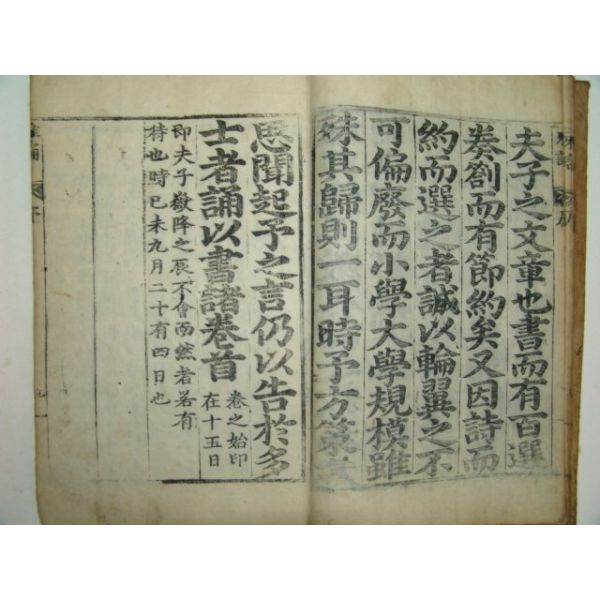 夫子之文章也書而有百選
奏劄而有節約矣又因詩而
約而選之者誠以輪翼之不
可偏廢而小學大學規模雖
殊其歸則一耳時予方
思聞起予之言仍以告於多
士者誦以書諸卷首
卷之始印
在十五日
即夫子嶽降之辰不會而然者若有
待也時已未九月二十有四日也